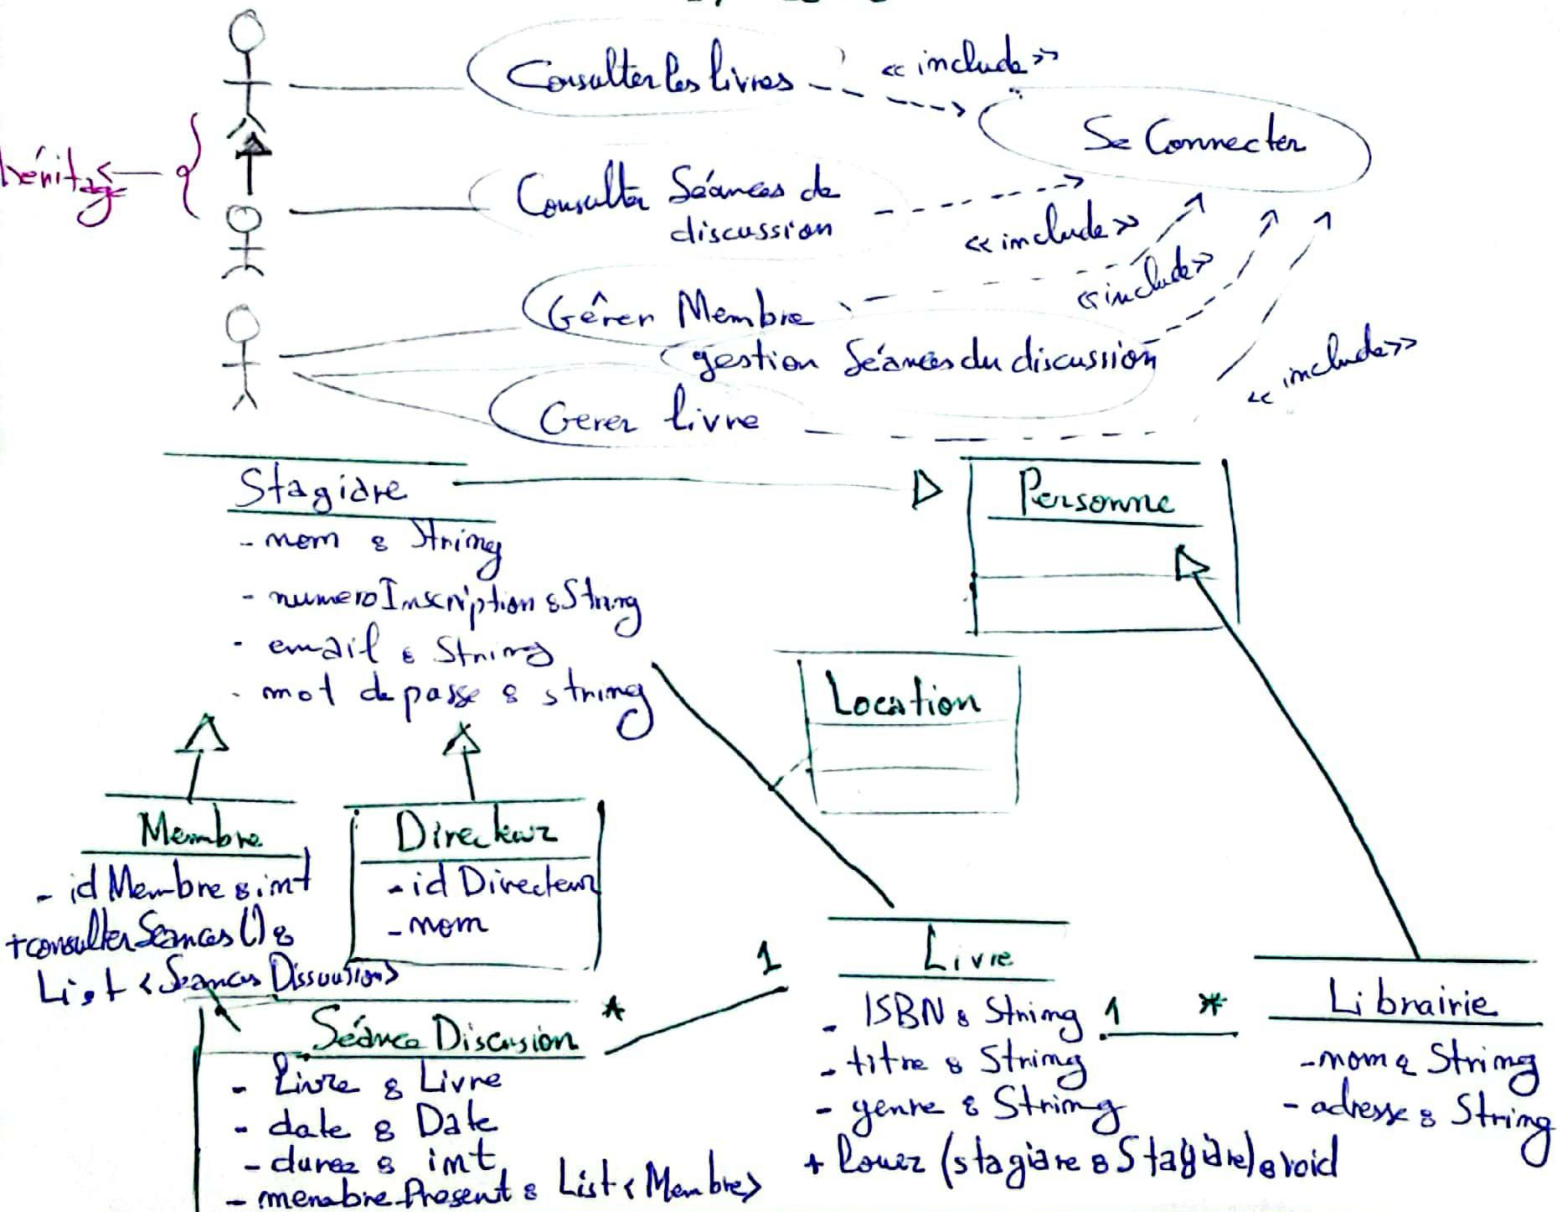 Consulter les livres
« include »
Se Connecter
Consulter Séances de
discussion
« include »
Gêrer Membre
« include »
gestion Séances du discussion
« include »
Gerer livre
Stagiare
- nom : String
- numeroInscription : String
- email : String
- mot de passe : string
Personne
Location
Membre
- idMembre : int
+consulterSeances() :
List <Seances Discussion>
Directeur
- id Directeur
- nom
* 1
Séance Discusion
- Livre : Livre
- date : Date
- durez : int
- menabre Present : List <Membre>
Livre
- ISBN : String
- titre : String
- genre : String
+ louer (stagiare : Stagiare) : void
1 *
Librairie
- nom : String
- adresse : String